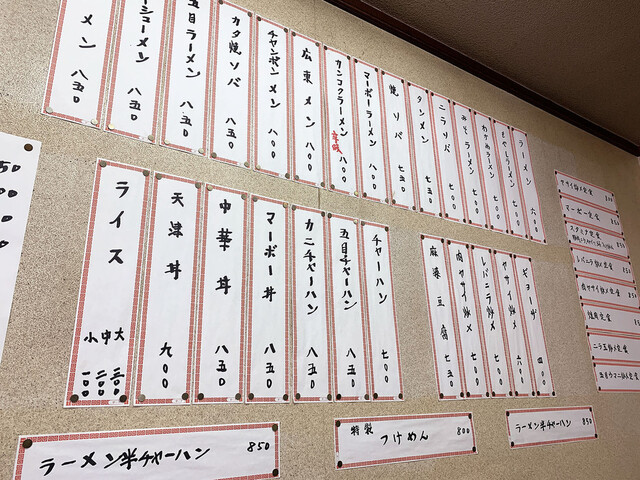 ラーメン 六〇〇
もやしラーメン 七〇〇
わかめラーメン 七〇〇
みそラーメン 七〇〇
ニラソバ 七五〇
タンメン 七五〇
焼ソバ 七五〇
マーボーラーメン 八〇〇
カンコクラーメン 辛味 八〇〇
広東メン 八〇〇
チャンポンメン 八〇〇
カタ焼ソバ 八五〇
五目ラーメン 八五〇
ーシューメン 八五〇
メン 八五〇
ギョーザ 四〇〇
ヤサイ炒メ 六〇〇
レバニラ炒メ 七〇〇
肉ヤサイ炒メ 七〇〇
麻婆豆腐 七五〇
チャーハン 七〇〇
五目チャーハン 八五〇
カニチャーハン 八五〇
マーボー丼 八五〇
中華丼 八五〇
天津丼 九〇〇
ライス
大 三〇〇
中 二〇〇
小 一〇〇
ヤサイ炒メ定食 800
マーボー定食 850
スタミナ定食
レバニラ炒メ定食 850
肉ヤサイ炒メ定食 850
焼肉定食
ニラ玉炒メ定食
ラーメン半チャーハン 850
特製
つけめん 800
ラーメン半チャーハン 850